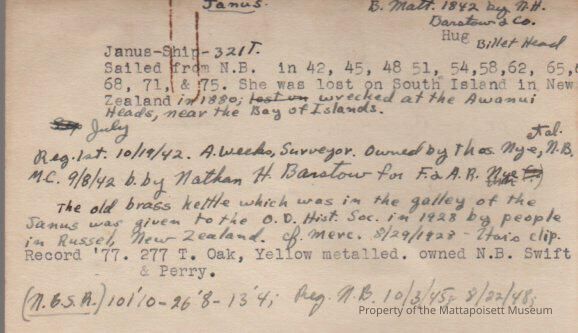 Janus.
B. Matt. 1842 by N.H.
Barstow & Co.
Hug Billet Head
Janus-Ship-321T.
Sailed from N.B. in 42, 45, 48 51, 54,58,62, 65,
68, 71, & 75. She was lost on South Island in New
Zealand in 1880; lost on wrecked at the Awanui
Heads, near the Bay of Islands.
July
et al.
Reg. 1st. 10/19/42. A. Weeks, Surveyor. Owned by Thos. Nye, N.B.
M.C. 9/8/42 b. by Nathan H Barstow for F. & A.R. Nye
The old brass kettle which was in the galley of the
Janus was given to the O.D. Hist. Soc. in 1928 by people
in Russel, New Zealand. cf. Merc. 8/29/1928 - clip.
Record '77. 277 T. Oak, Yellow metalled. owned N.B. Swift
& Perry.
(N.B.S.R.) 101'10-26'8-13'4; Reg. N.B. 10/3/45; 8/22/48;
Property of the Mattapoisett Museum